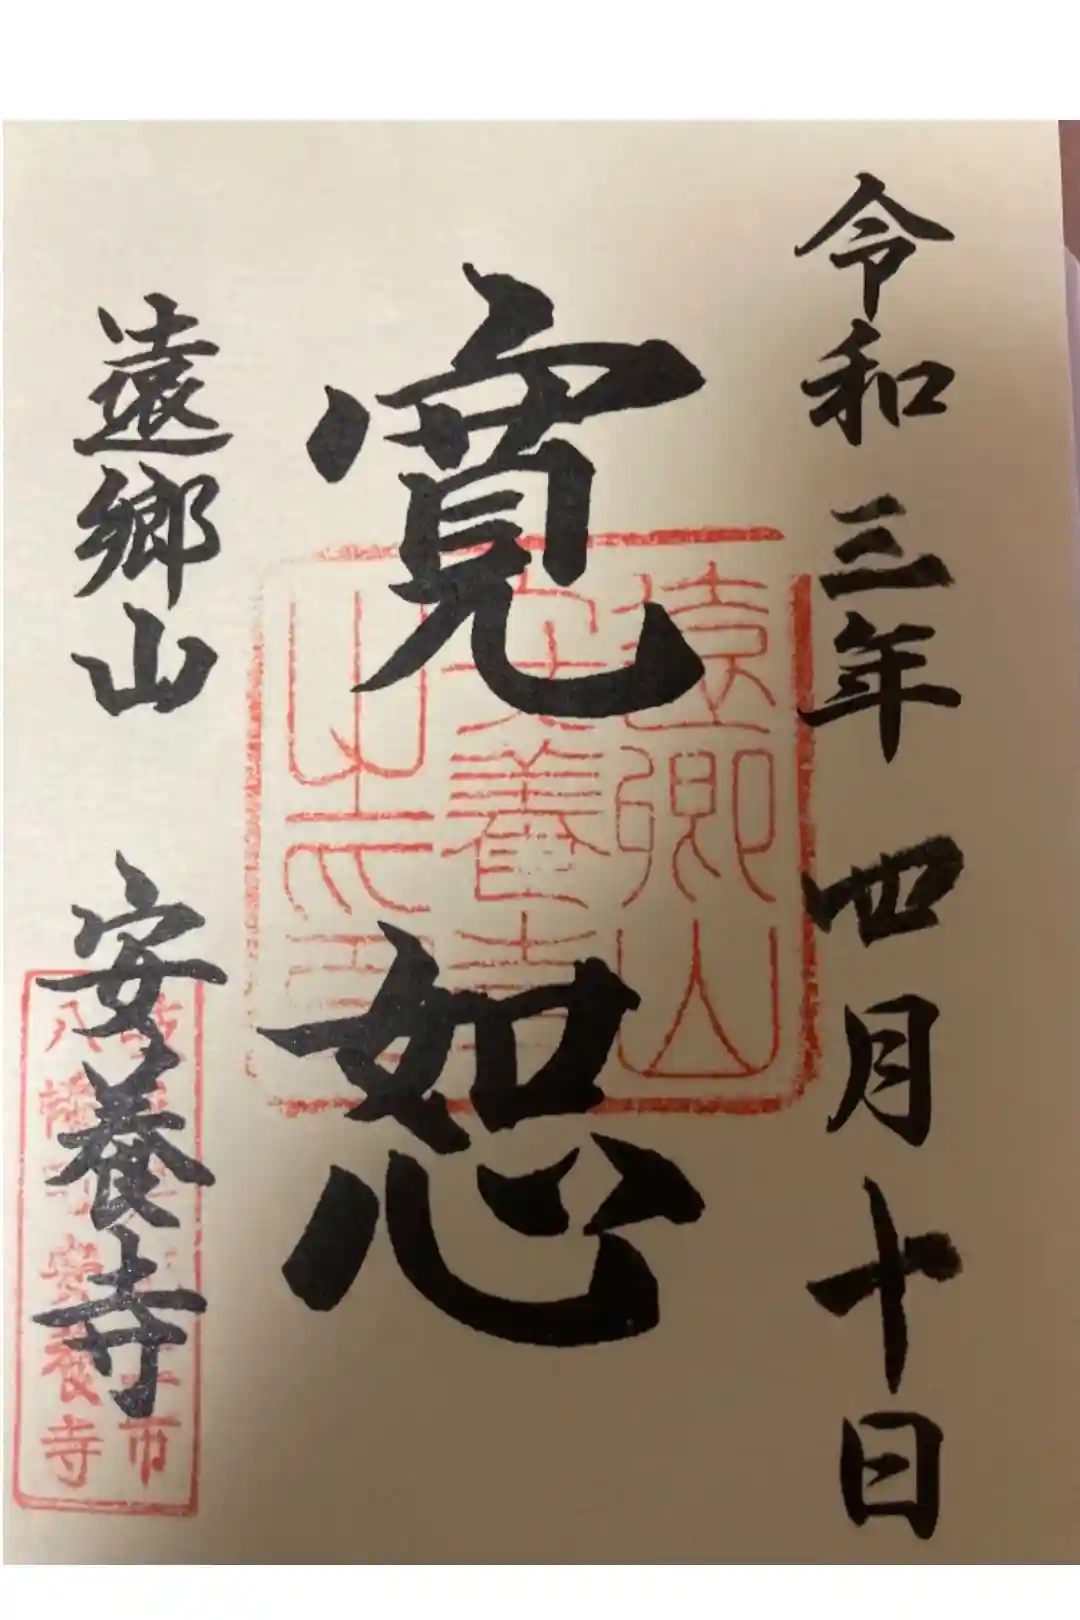 令和三年 四月十日
寛恕
遠郷山 安養寺
遠郷山
安養寺
之印
市
八幡町安養寺